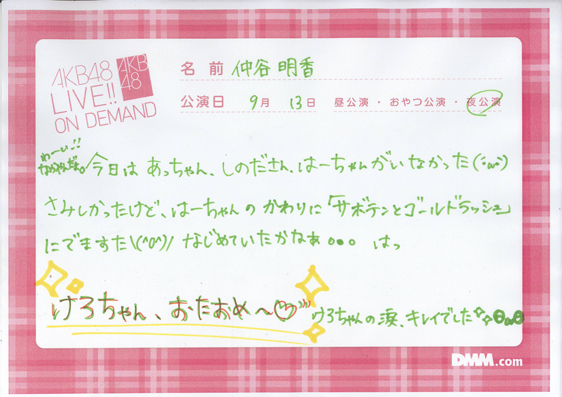 AKB48
LIVE!!
ON DEMAND
AKB
48
名 前 仲谷 明香
公演日 9月 13日 昼公演・おやつ公演・夜公演
わーい!!
なかやんだょ。
今日は あっちゃん、しのださん、はーちゃんがいなかった(;ω;)
さみしかったけど、はーちゃんの かわりに「サボテンとゴールドラッシュ」
にでますた\(^o^)/ なじめていたかなぁ。。。 はっ
けろちゃん、おたおめ〜♡
けろちゃんの涙、キレイでした
DMM.com